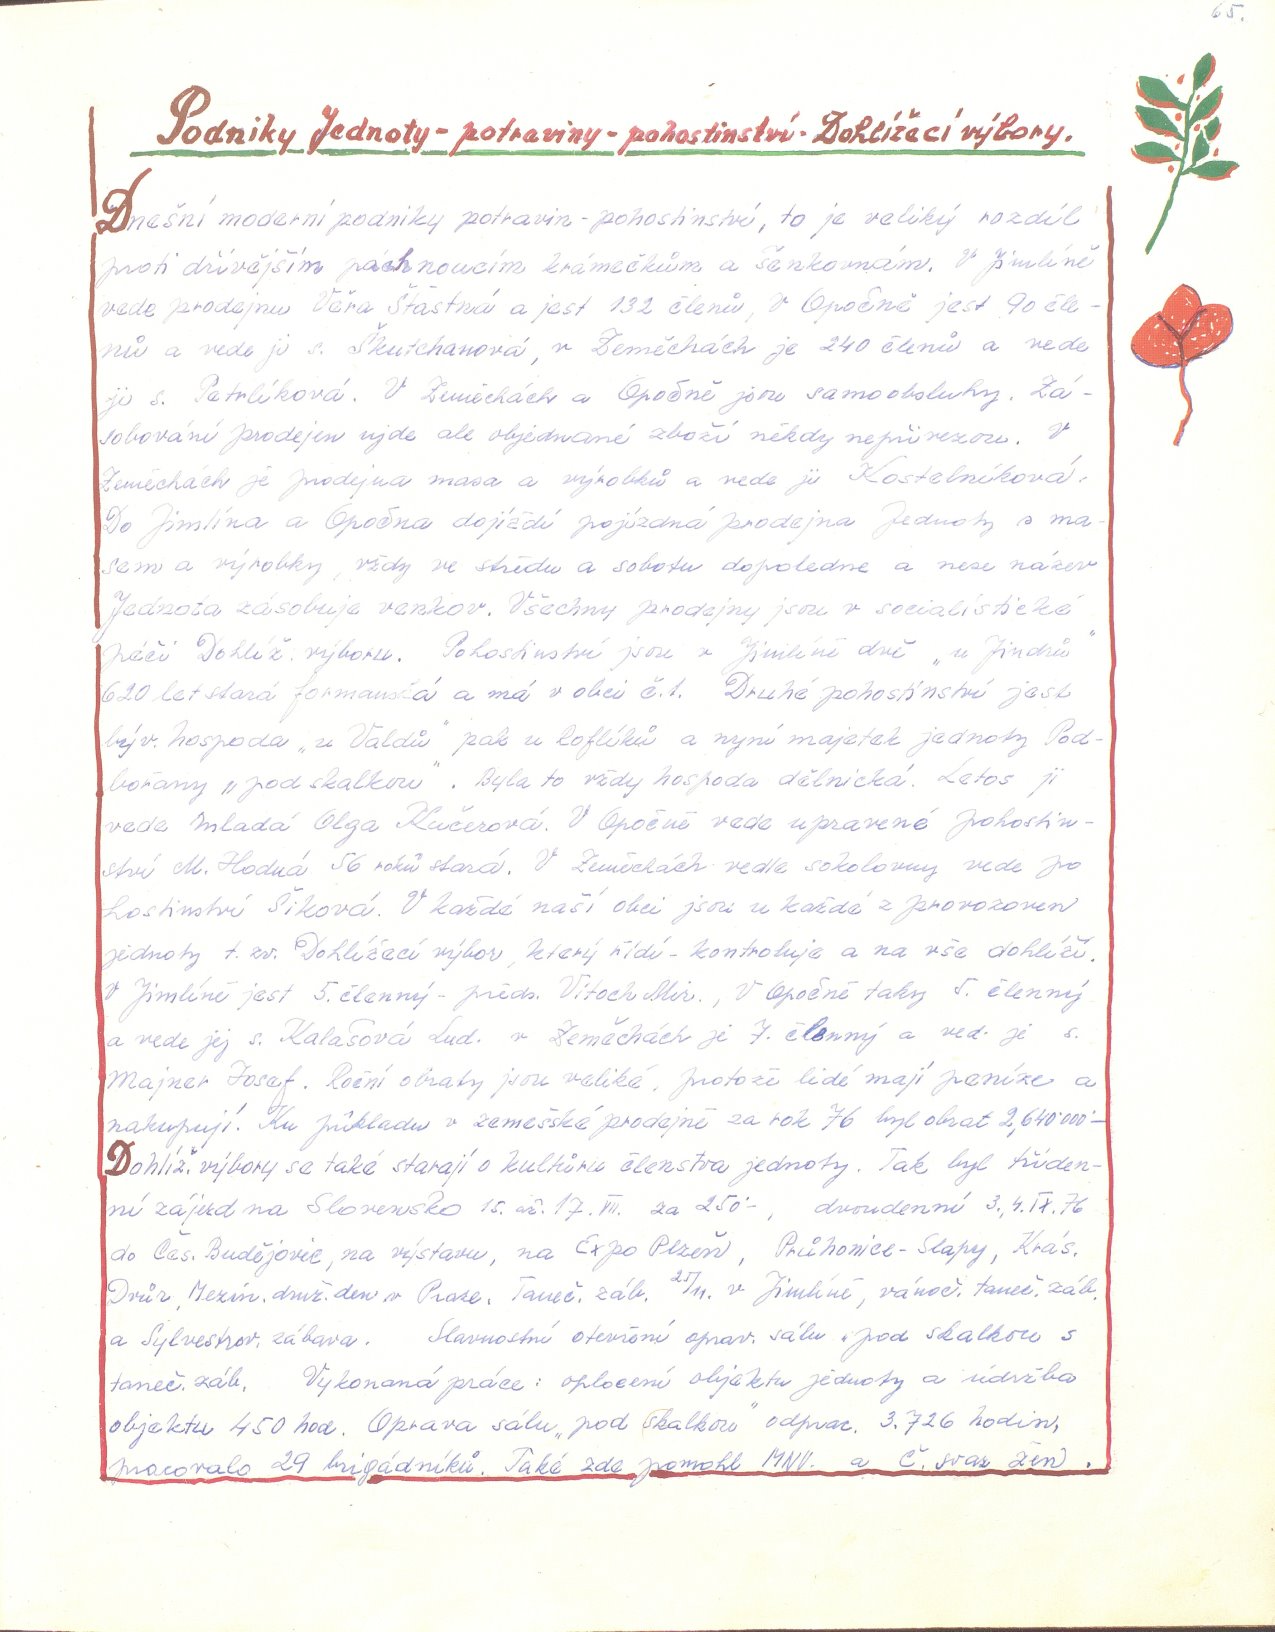 65.
Podniky Jednoty - potraviny - pohostinství - Dohlížecí výbory.
Dnešní moderní podniky potravin - pohostinství, to je veliký rozdíl
proti dřívějším páchnoucím krámečkům a šenkovnám. V Jimlíně
vede prodejnu Věra Šťastná a jest 132 členů, v Opočně jest 90 čle-
nů a vede ji s. Škutchanová, v Zeměchách je 240 členů a vede
ji s. Petrlíková. V Zeměchách a Opočně jsou samoobsluhy. Zá-
sobování prodejen ujde ale objednané zboží někdy nepřivezou. V
Zeměchách je prodejna masa a výrobků a vede ji Kostelníková.
Do Jimlína a Opočna dojíždí pojízdná prodejna Jednoty s ma-
sem a výrobky, vždy ve středu a sobotu dopoledne a nese název
Jednota zásobuje venkov. Všechny prodejny jsou v socialistické
péči Dohlíž. výboru. Pohostinství jsou v Jimlíně dvě „u Jindrů"
620 let stará formanská a má v obci č.1. Druhé pohostinství jest
býv. hospoda „u Valdů" pak u Loflíků a nyní majetek jednoty Pod-
bořany „pod skalkou". Byla to vždy hospoda dělnická. Letos ji
vede mladá Olga Kučerová. V Opočně vede upravené pohostin-
ství M. Hodná 56 roků stará. V Zeměchách vedle sokolovny vede po
hostinství Šiková. V každé naší obci jsou u každé z provozoven
jednoty t. zv. Dohlížecí výbor, který řídí - kontroluje a na vše dohlíží.
V Jimlíně jest 5. členný - předs. Vítoch Mir., V Opočně taky 5. členný
a vede jej s. Kalašová Lud. v Zeměchách je 7. členný a ved. je s.
Majner Josef. Roční obraty jsou veliké, protože lidé mají peníze a
nakupují. Ku příkladu v zemešské prodejně za rok 76 byl obrat 2,640.000.-
Dohlíž. výbory se také starají o kulturu členstva jednoty. Tak byl tříden-
ní zájezd na Slovensko 15. až. 17. VII. za 250.-, dvoudenní 3., 4. IX. 76
do Čes. Budějovic, na výstavu, na Expo Plzeň, Průhonice - Slapy, Krás.
Dvůr, Mezin. druž. den v Praze. Taneč. záb. 25/11. v Jimlíně, vánoč. taneč. záb.
a Sylvestrov. zábava. Slavnostní otevření oprav. sálu „pod skalkou s
taneč. záb. Vykonaná práce: oplocení objektu jednoty a údržba
objektu 450 hod. Oprava sálu „pod Skalkou" odprac. 3.726 hodin,
pracovalo 29 brigádníků. Také zde pomohl MNV. a Č. svaz žen.